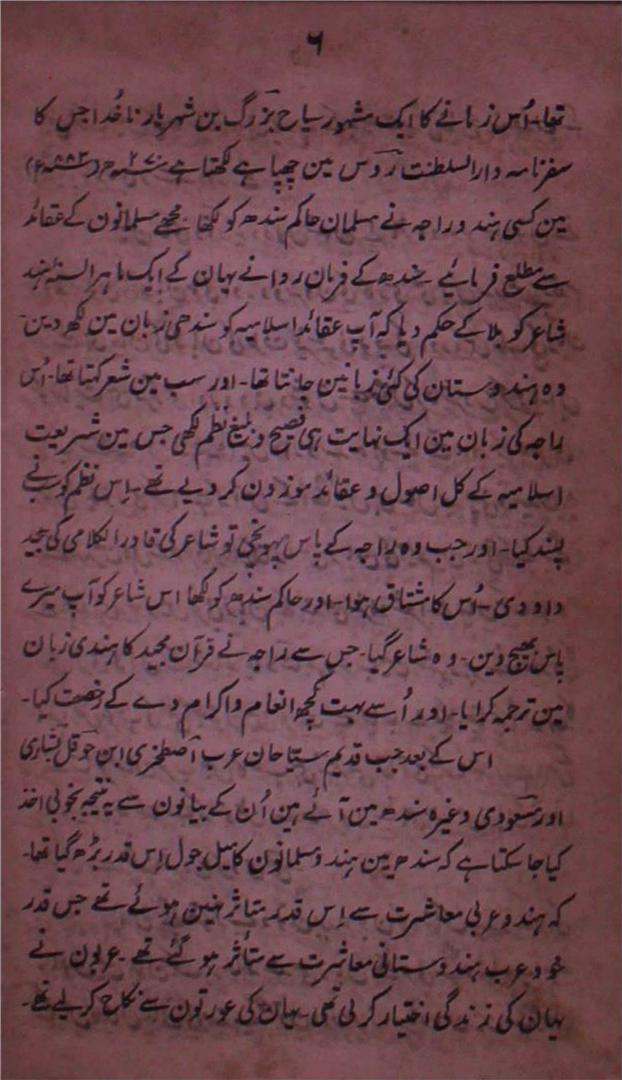 ۶
تھا۔ اُس زمانے کا ایک مشہور سیاح بزرگ بن شہریار ناخُدا جس کا
سفرنامہ دارالسلطنت روس مین چھپا ہے لکھتا ہے ۲۷۰ھ (۸۸۳ء)
مین کسی ہندو راجہ نے مسلمان حاکم سندھ کو لکھا مجھے مسلمانون کے عقائد
سے مطلع فرمائیے۔ سندھ کے فرمان روا نے یہان کے ایک ماہر السنۂ ہند
شاعر کو بلا کے حکم دیا کہ آپ عقائد اسلامیہ کو سندھی زبان مین لکھ دین۔
وہ ہندوستان کی کئی زبانین جانتا تھا۔ اور سب مین شعر کہتا تھا۔ اُس
راجہ کی زبان مین ایک نہایت ہی فصیح و بلیغ نظم لکھی جس مین شریعت
اسلامیہ کے کل اصول و عقائد موزون کر دیے تھے۔ اِس نظم کو سب نے
پسند کیا۔ اور جب وہ راجہ کے پاس پہونچی تو شاعر کی قادر الکلامی کی بیحد
داد دی۔ اُس کا مشتاق ہوا۔ اور حاکم سندھ کو لکھا اس شاعر کو آپ میرے
پاس بھیج دین۔ وہ شاعر گیا۔ جس سے راجہ نے قرآن مجید کا ہندی زبان
مین ترجمہ کرایا۔ اور اُسے بہت کچھ انعام و اکرام دے کے رخصت کیا۔
اس کے بعد جب قدیم سیاحان عرب اصطخری ابن حوقل بشاری
اور مسعودی وغیرہ سندھ مین آئے ہین اُن کے بیانون سے یہ نتیجہ بخوبی اخذ
کیا جا سکتا ہے کہ سندھ مین ہندو مسلمانون کا میل جول اِس قدر بڑھ گیا تھا۔
کہ ہندو عربی معاشرت سے اِس قدر متاثر نہین ہوئے تھے جس قدر
خود عرب ہندوستانی معاشرت سے متأثر ہو گئے تھے۔ عربون نے
یہان کی زندگی اختیار کر لی تھی۔ یہان کی عورتون سے نکاح کر لیے تھے۔